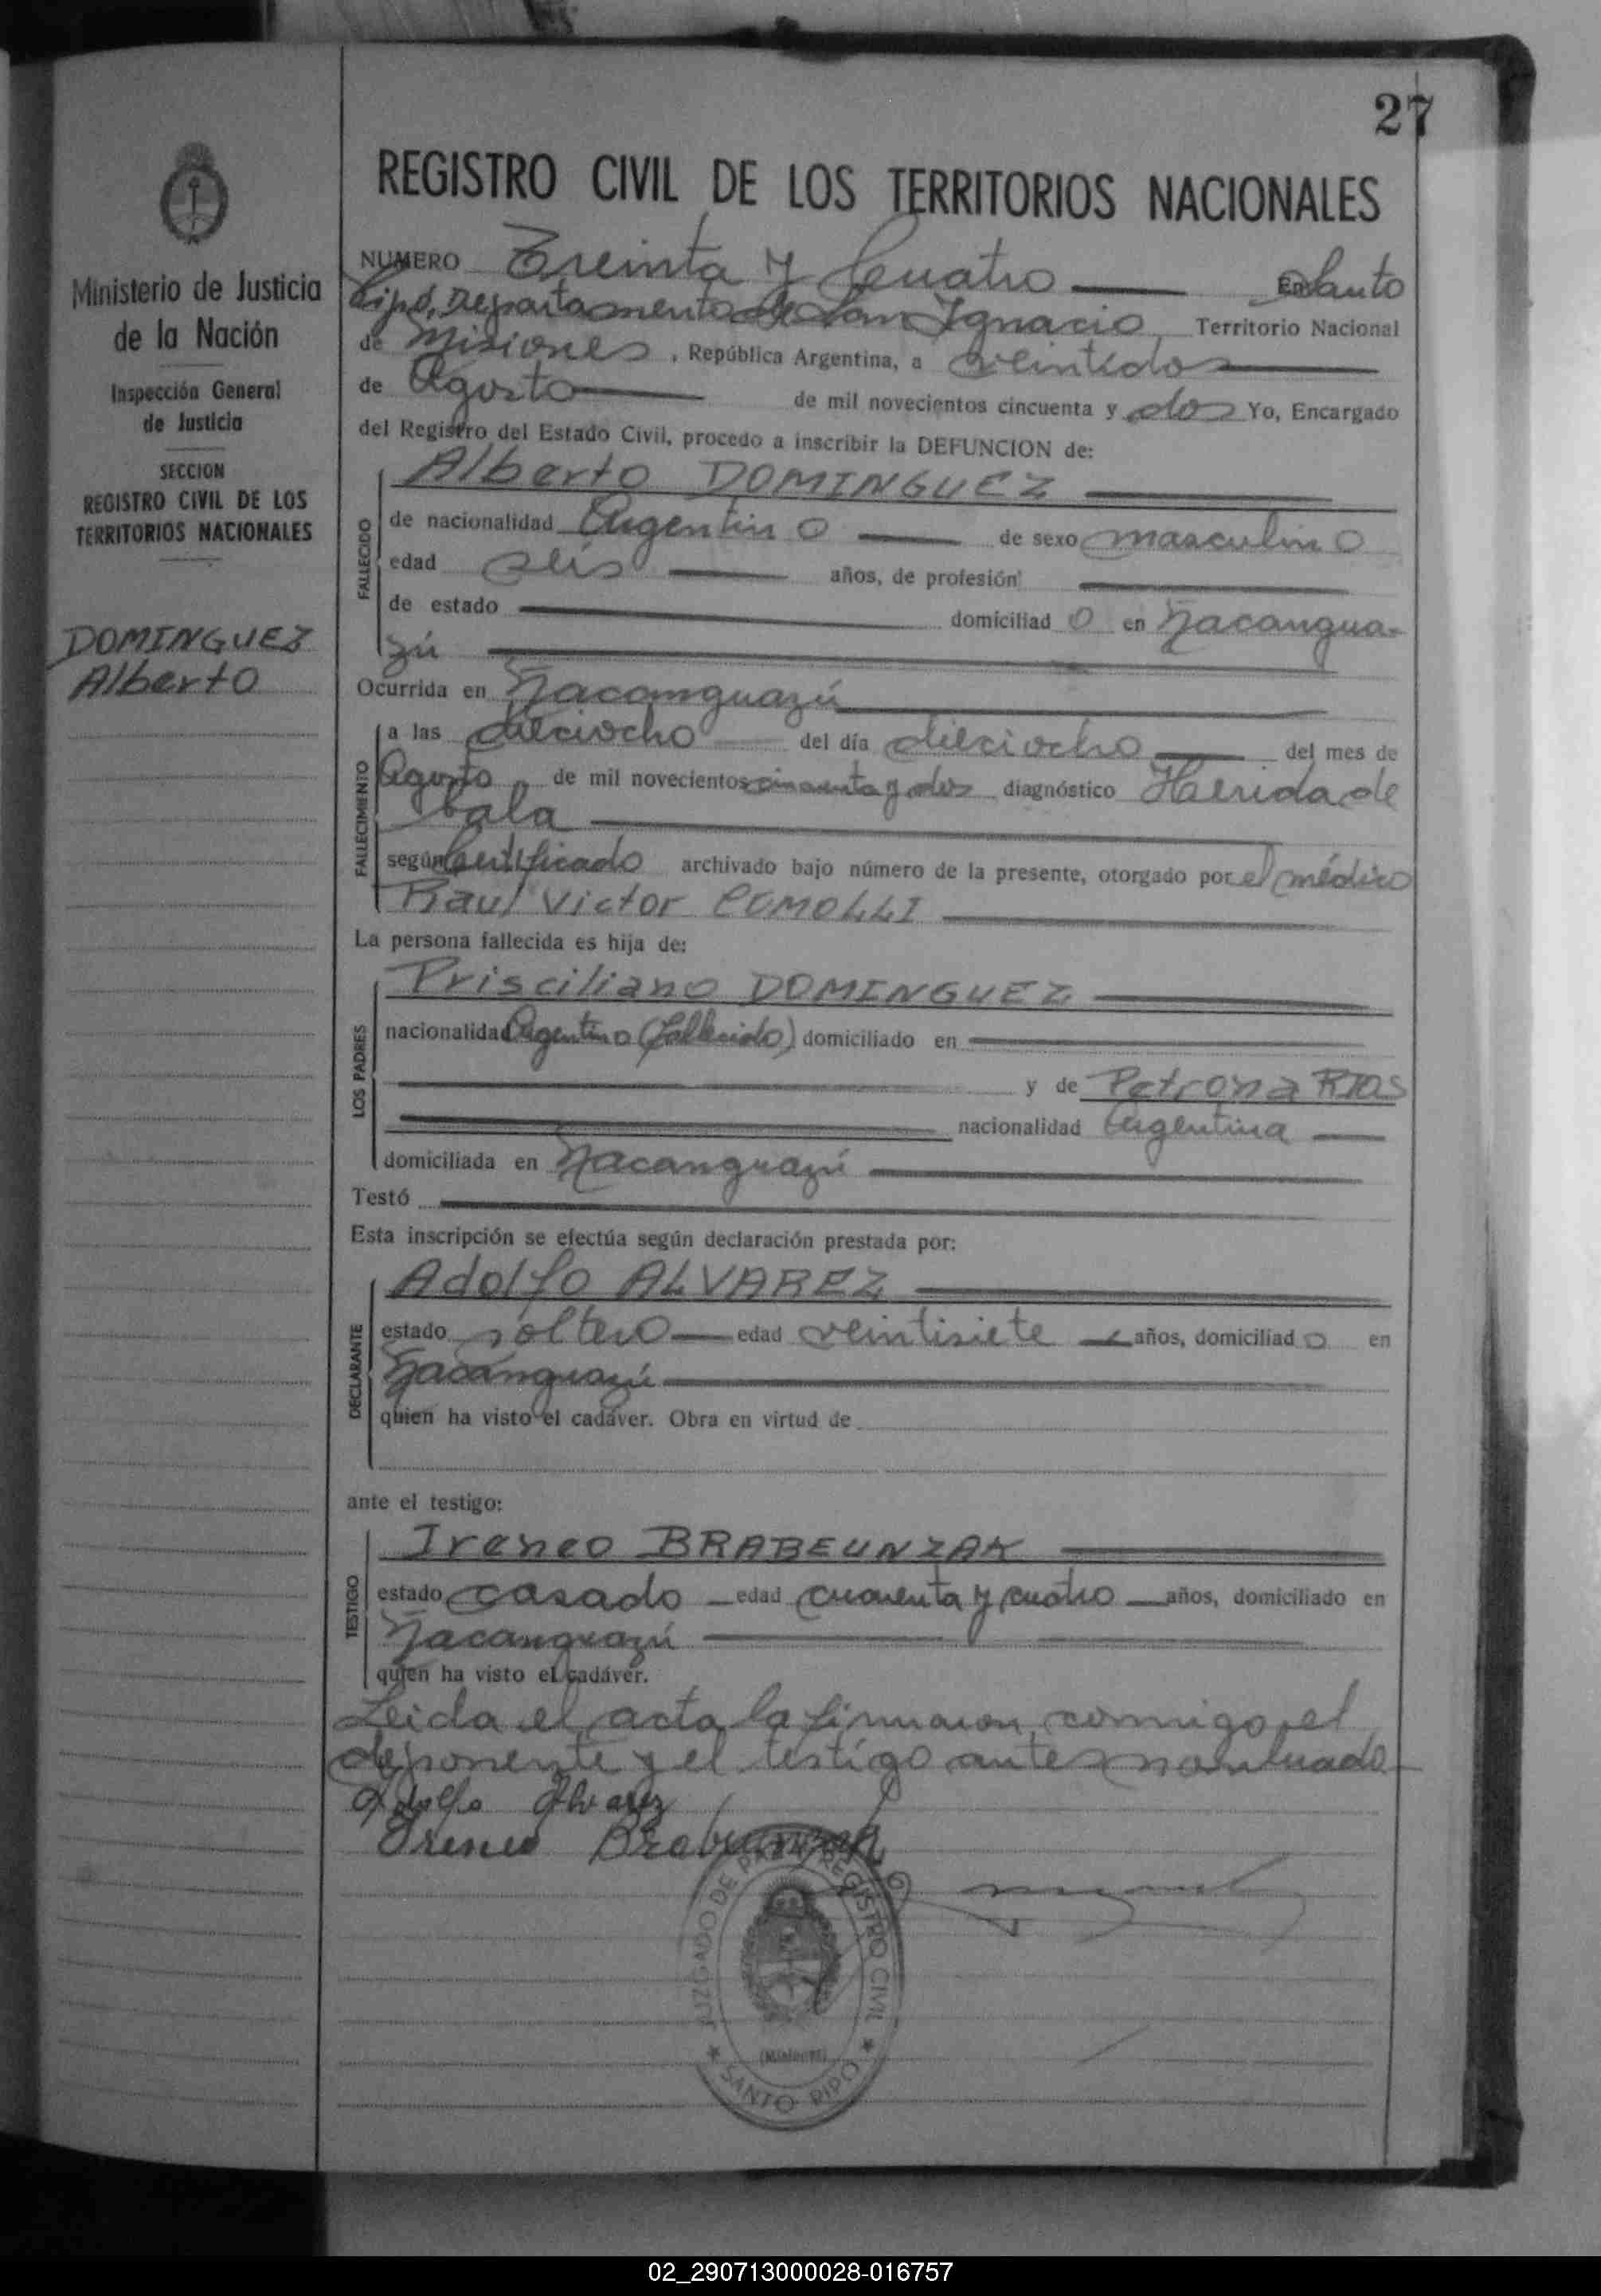 27
REGISTRO CIVIL DE LOS TERRITORIOS NACIONALES
Ministerio de Justicia
de la Nación
Inspección General
de Justicia
SECCION
REGISTRO CIVIL DE LOS
TERRITORIOS NACIONALES
DOMINGUEZ
Alberto
NUMERO Treinta y Cuatro En Santo
Pipó, Departamento de San Ignacio Territorio Nacional
de Misiones, República Argentina, a veintidos
de Agosto de mil novecientos cincuenta y dos Yo, Encargado
del Registro del Estado Civil, procedo a inscribir la DEFUNCION de:
Alberto DOMINGUEZ
FALLECIDO
de nacionalidad Argentino de sexo masculino
edad seis años, de profesión
de estado domiciliado en Ñacangua-
zú
Ocurrida en Ñacanguazú
FALLECIMIENTO
a las dieciocho del día dieciocho del mes de
Agosto de mil novecientos cincuenta y dos diagnóstico Herida de
bala
según Certificado archivado bajo número de la presente, otorgado por el médico
Raul Victor COMOLLI
La persona fallecida es hija de:
LOS PADRES
Prisciliano DOMINGUEZ
nacionalidad Argentino (fallecido) domiciliado en
y de Petrona RIOS
nacionalidad Argentina
domiciliada en Ñacanguazú
Testó
Esta inscripción se efectúa según declaración prestada por:
DECLARANTE
Adolfo ALVAREZ
estado soltero edad veintisiete años, domiciliado en
Ñacanguazú
quien ha visto el cadáver. Obra en virtud de
ante el testigo:
TESTIGO
Ireneo BRABEUNZAK
estado casado edad cuarenta y cuatro años, domiciliado en
Ñacanguazú
quien ha visto el cadáver.
Leida el acta la firmaron conmigo, el
deponente y el testigo antes nombrado
Adolfo Alvarez
Ireneo
JUZGADO DE PAZ Y REGISTRO CIVIL
(Misiones)
★ SANTO PIPO ★
02_290713000028-016757